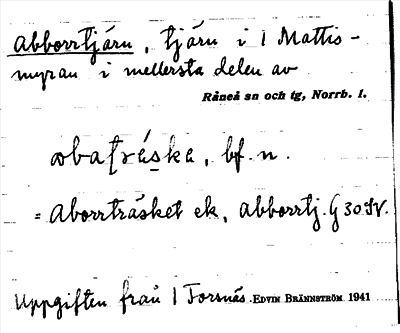 Abborrtjärn, tjärn i l Mattis-
myran i mellersta delen av
Råneå sn och tg, Norrb. l.
abaträ́ska, bf. n.
= Aborrträsket ek, abborrtj. G 30 SV.
Uppgiften från l Forsnäs. EDVIN BRÄNNSTRÖM 1941